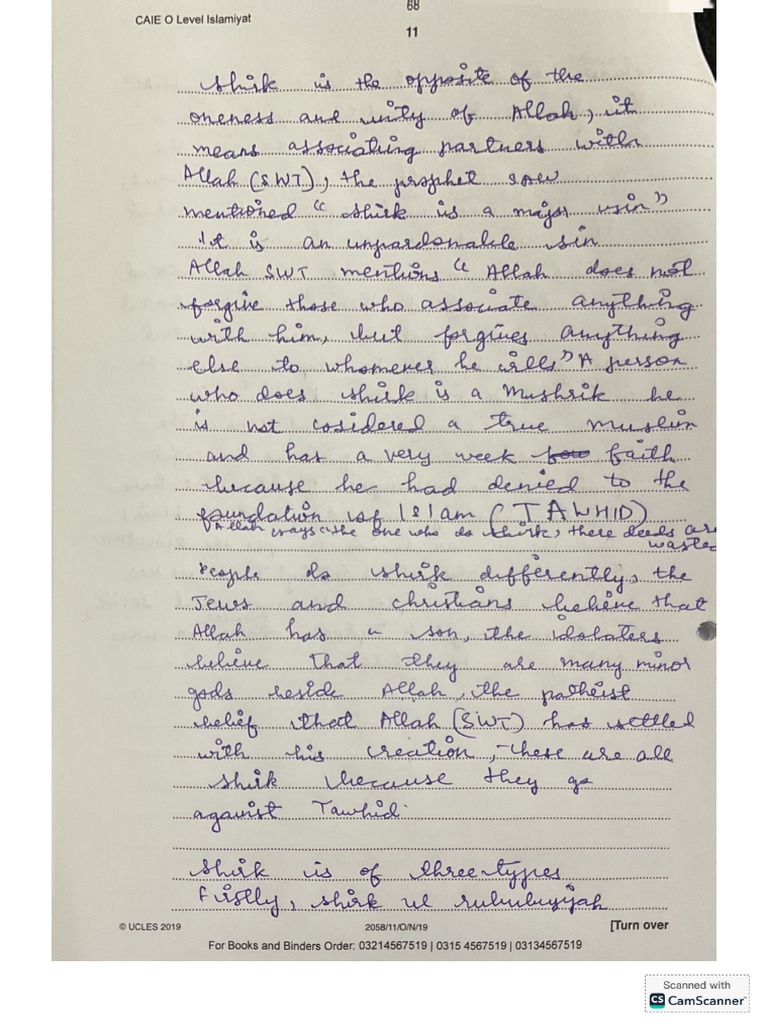 68
CAIE O Level Islamiyat
11
Shirk is the opposite of the
oneness and unity of Allah, it
means associating partners with
Allah (SWT), the prophet SAW
mentioned "shirk is a major sin"
It is an unpardonable sin
Allah SWT mentions "Allah does not
forgive those who associate anything
with him, but forgives anything
else to whomever he wills" A person
who does shirk is a Mushrik he
is not cosidered a true muslim
and has a very week faith
because he had denied to the
foundation of Islam (TAWHID)
Allah says "the one who do shirk, there deeds are
waste
People do shirk differently, the
Jews and christians believe that
Allah has a son, the idolaters
believe that they are many minor
gods beside Allah, the patheist
belief that Allah (SWT) has settled
with his creation, these are all
shirk because they go
against Tawhid.
Shirk is of three types
Firstly, shirk ul rububuyijah
© UCLES 2019
2058/11/O/N/19
[Turn over
For Books and Binders Order: 03214567519 | 0315 4567519 | 03134567519
Scanned with
CS CamScanner